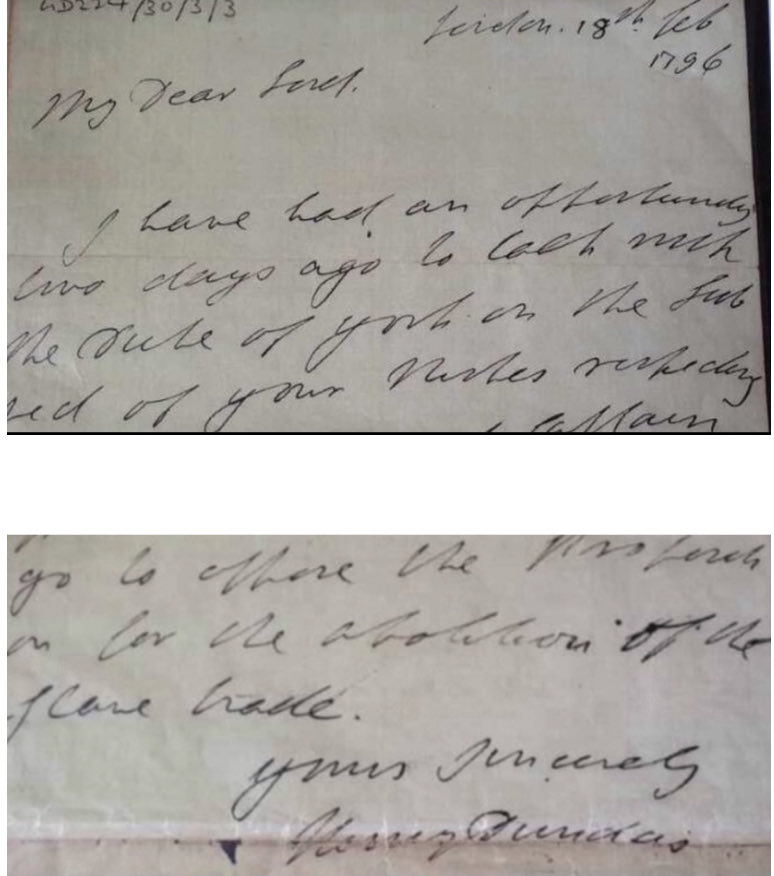 GD224/30/3/3
London. 18th. feb
1796
My Dear Lord.
I have had an opportunity
two days ago to talk with
the Duke of York on the Sub
ject of your Wishes respecting
Captain
go to oppose the
on for the abolition of the
Slave trade.
yours Sincerely
Henry Dundas